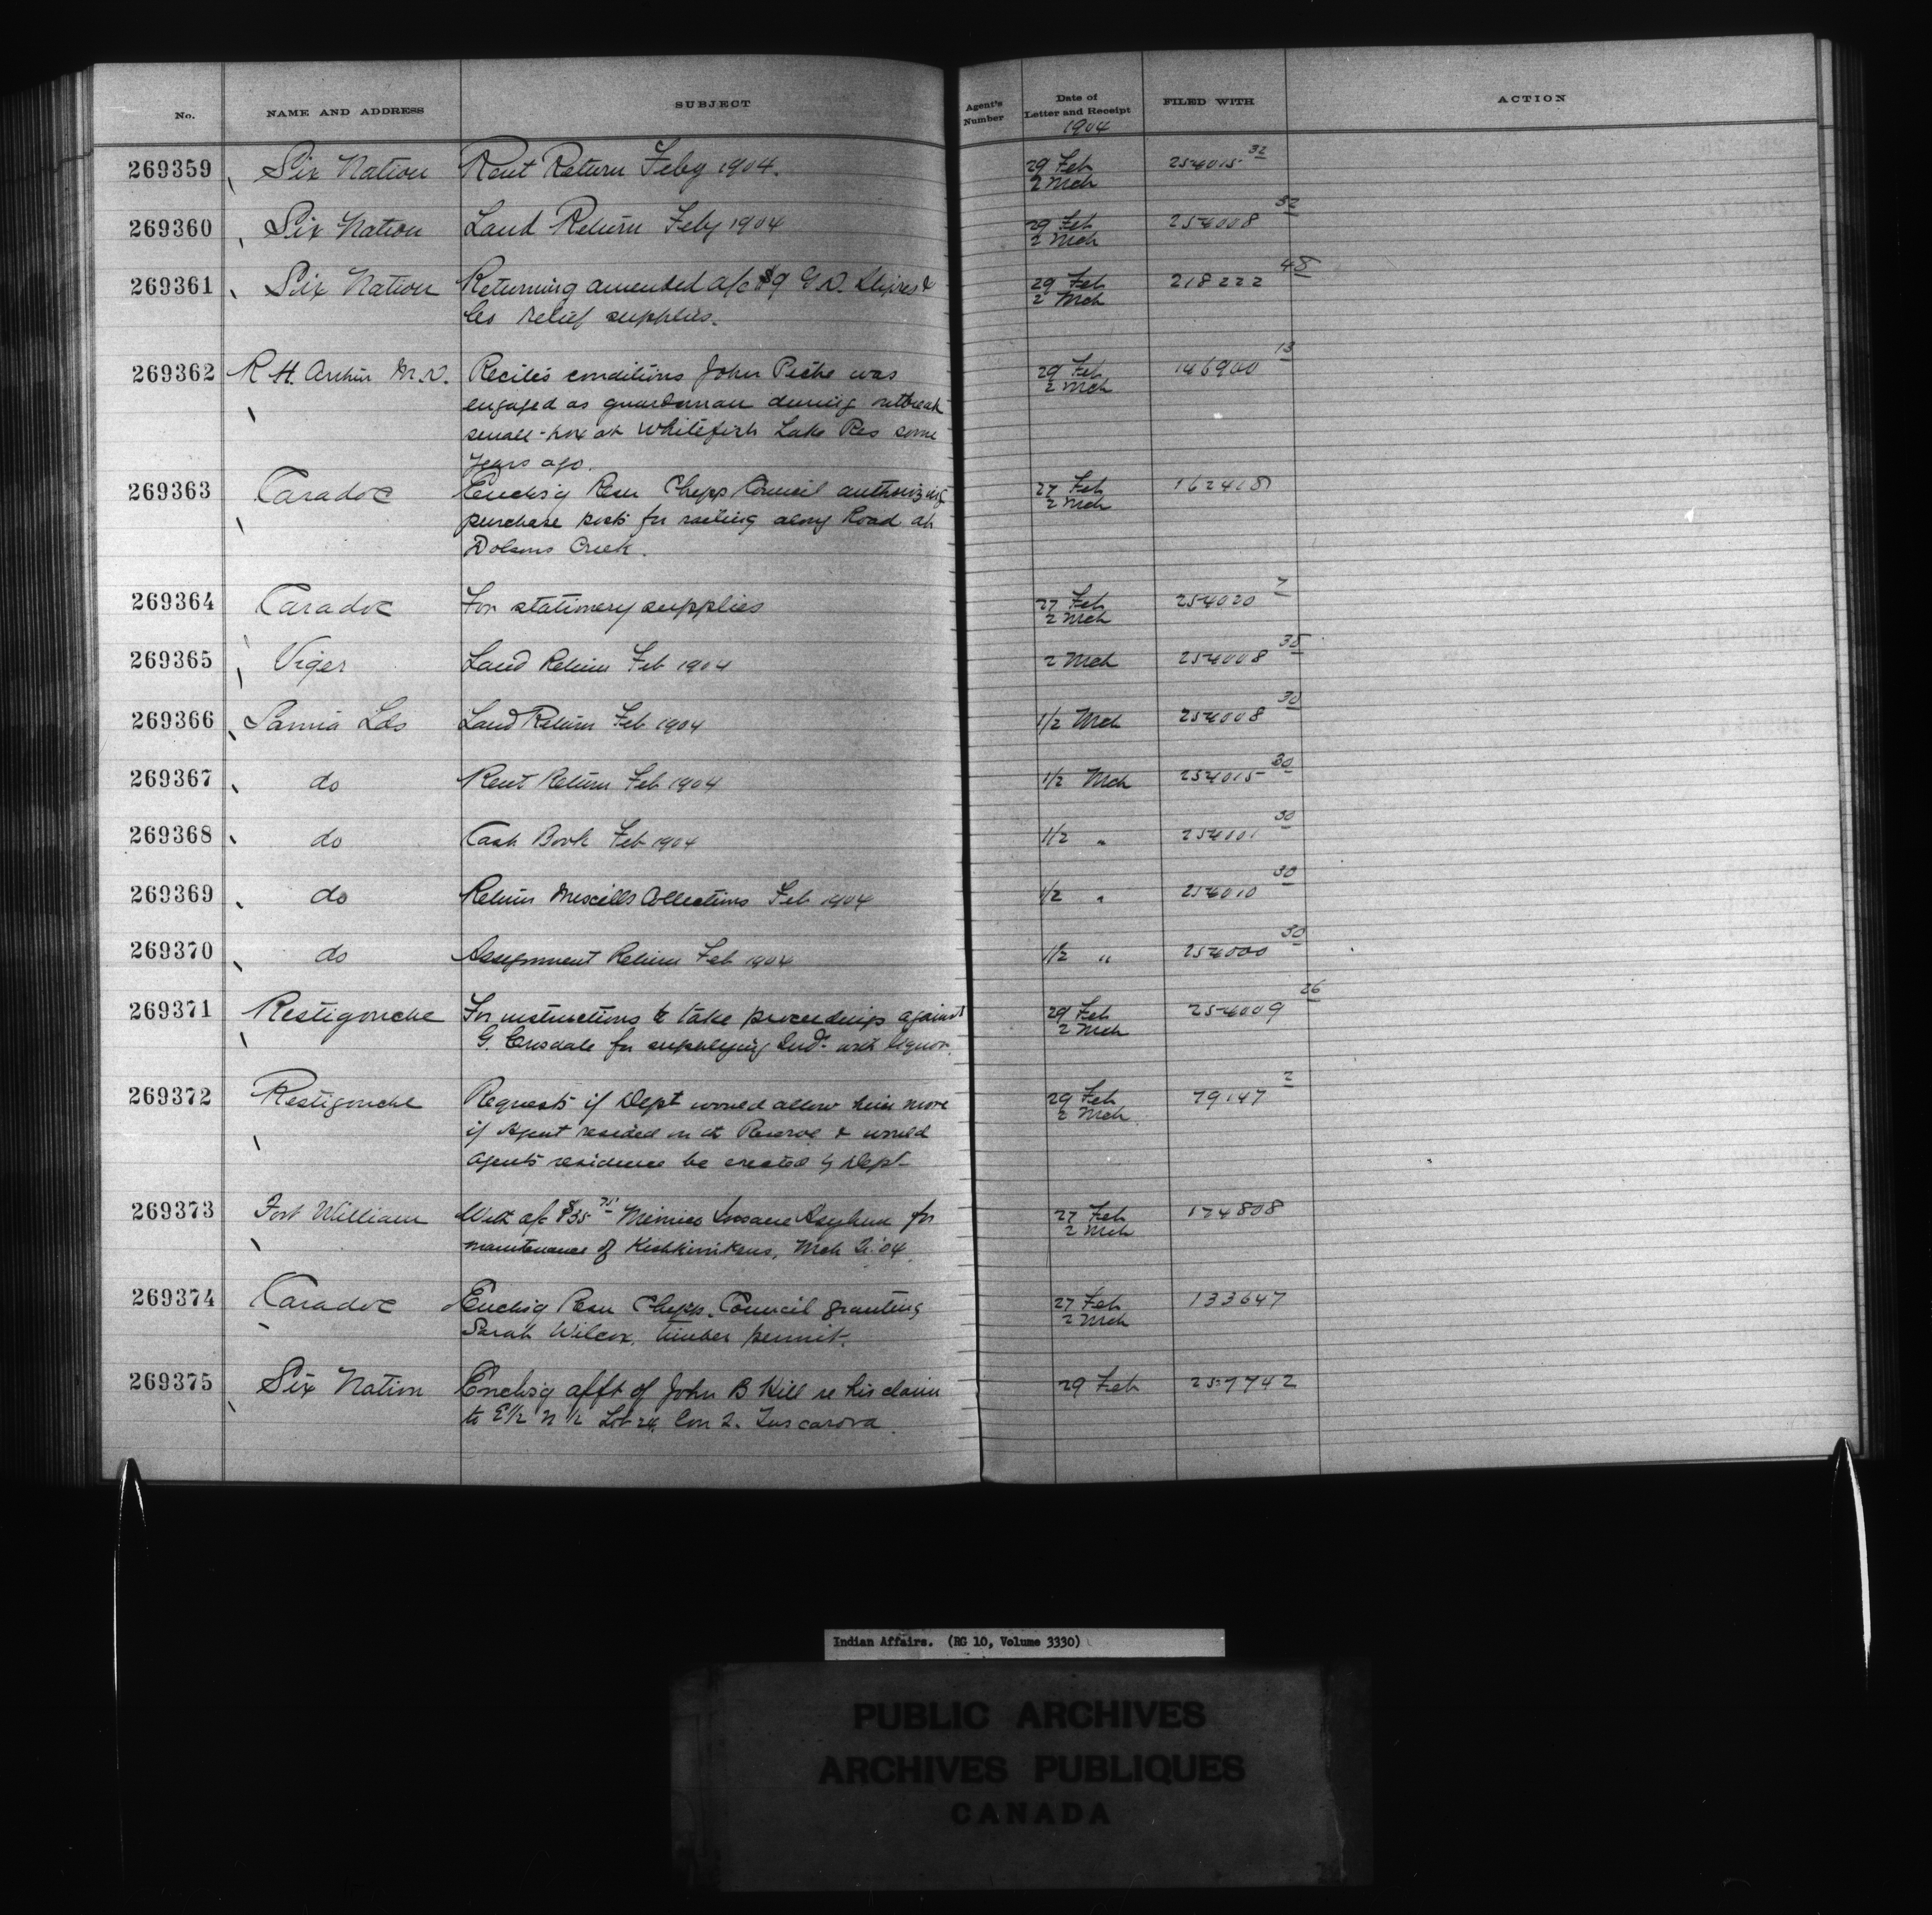 No. NAME AND ADDRESS SUBJECT Agent's Number Date of Letter and Receipt FILED WITH ACTION
1904
269359 Six Nation Rent Return Feby 1904. 29 Feb 254015 32
2 Mch
269360 Six Nation Land Return Feby 1904 29 Feb 254008 32
2 Mch
269361 Six Nation Returning amended a/c $9 G.D. & 29 Feb 218222 45
Co relief supplies. 2 Mch
269362 R H. Arthur M.D. Recites conditions John Piche was 29 Feb 146900 13
engaged as guardsman during outbreak 2 Mch
small-pox at Whitefish Lake Res some
years ago.
269363 Caradoc Enclos'g Resn Chipps Council authorizing 27 Feb 162418
purchase posts for railing along Road at 2 Mch
Dolsons Creek.
269364 Caradoc For stationery supplies 27 Feb 254020 7
2 Mch
269365 Viger Land Return Feb 1904 2 Mch 254008 35
269366 Sarnia Lds Land Return Feb 1904 1/2 Mch 254008 30
269367 do Rent Return Feb 1904 1/2 Mch 254015 30
269368 do Cash Book Feb 1904 1/2 " 254001 30
269369 do Return Miscells Collections Feb 1904 1/2 " 254010 30
269370 do Assignment Return Feb 1904 1/2 " 254000 30
269371 Restigouche For instructions to take proceedings against 29 Feb 254009 26
G. for supplying Inds with liquor. 2 Mch
269372 Restigouche Requests if Dept would allow him more 29 Feb 79147 2
if Agent resided on at Reserve & would 2 Mch
agents residence be erected by Dept
269373 Fort William With a/c $35 75 Mimico Insane Asylum for 27 Feb 174808
maintenance of Kishkinikens, Mch 04. 2 Mch
269374 Caradoc Enclos'g Resn Chipp. Council granting 27 Feb 133647
Sarah Wilcox, timber permit. 2 Mch
269375 Six Nation Enclos'g afft of John B Hill re his claim 29 Feb 257742
to E 1/2 N 1/2 Lot 24, Con 2. Tuscarora.
Indian Affairs. (RG 10, Volume 3330)
PUBLIC ARCHIVES
ARCHIVES PUBLIQUES
CANADA